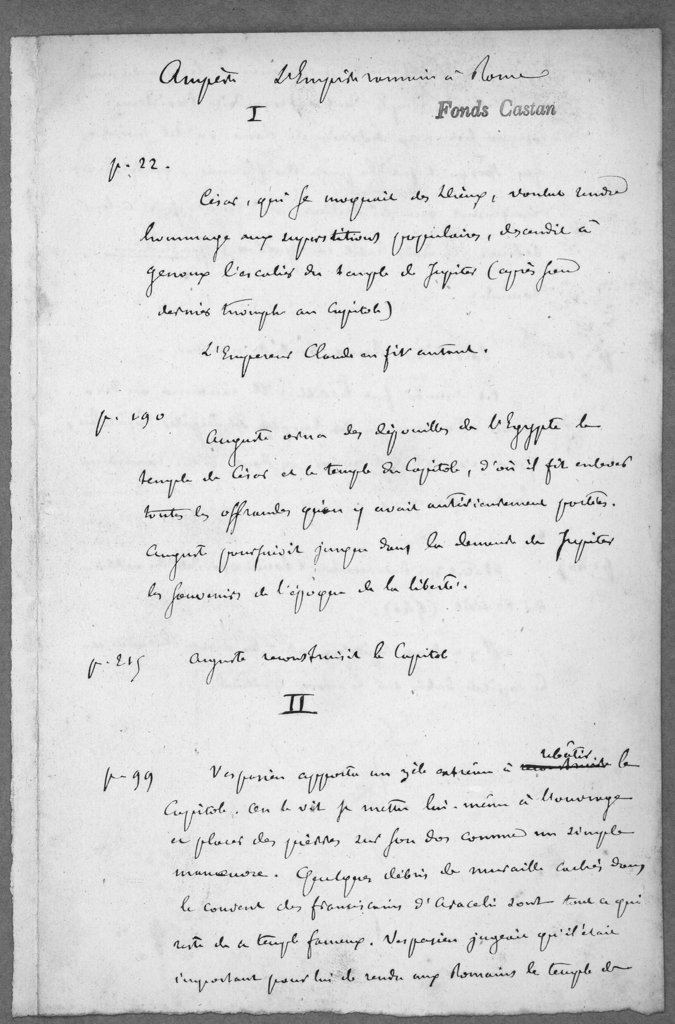 Ampère L'Empire romain à Rome
I
Fonds Castan
p. 22.
César, qui se moquait des Dieux, voulut rendre
hommage aux superstitions populaires, descendit à
genoux l'escalier du temple de Jupiter (après son
dernier triomphe au Capitole)
L'Empereur Claude en fit autant.
p. 190
Auguste orna des dépouilles de l'Egypte le
temple de César et le temple du Capitole, d'où il fit enlever
toutes les offrandes qu'on y avait antérieurement portées.
Auguste poursuivit jusque dans la demeure de Jupiter
les souvenirs de l'époque de la liberté.
p. 215 Auguste reconstruisit le Capitole
II
p. 99 Vespasien apporta un zèle extrême à rebâtir le
Capitole. On le vit se mettre lui-même à l'ouvrage
et placer des pierres sur son dos comme un simple
manœuvre. Quelques débris de muraille cachés dans
le couvent des franciscains d'Araceli sont tout ce qui
reste de ce temple fameux. Vespasien jugeait qu'il était
important pour lui de rendre aux Romains le temple de